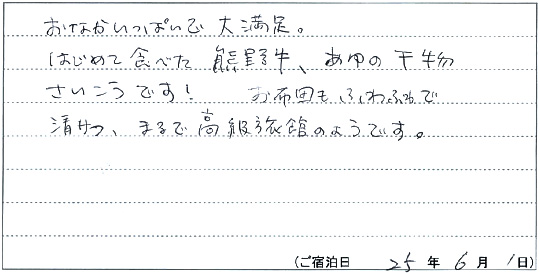 おなかいっぱいで大満足。
はじめて食べた熊野牛、あゆの干物
さいこうです！ お布団もふわふわで
清けつ、まるで高級旅館のようです。
(ご宿泊日 25年6月1日)